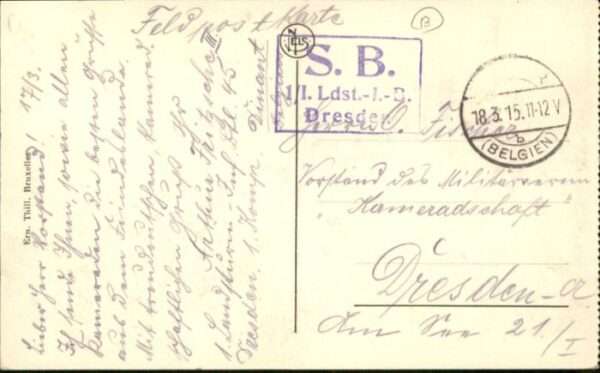 Feldpostkarte
B
NELS
S. B.
1/I. Ldst.-I.-B.
Dresden
18.3.15.11-12V
b
(BELGIEN)
Herrn O. Fischer
Vorstand des Militärverein
"Kameradschaft"
Dresden-A
Am See 21/I
17/3.
Lieber Herr Vorstand!
Ich sende Ihnen, sowie allen
Kameraden die besten Grüße
aus dem Feindeslande.
Mit treudeutschem, kamerad-
schaftlichem Gruß Ihr
Arthur Fritzsche III
1. Landsturm-Inf. Btl. 45
Dresden, 1. Komp.
Dinant
Belgien
Ern. Thill, Bruxelles